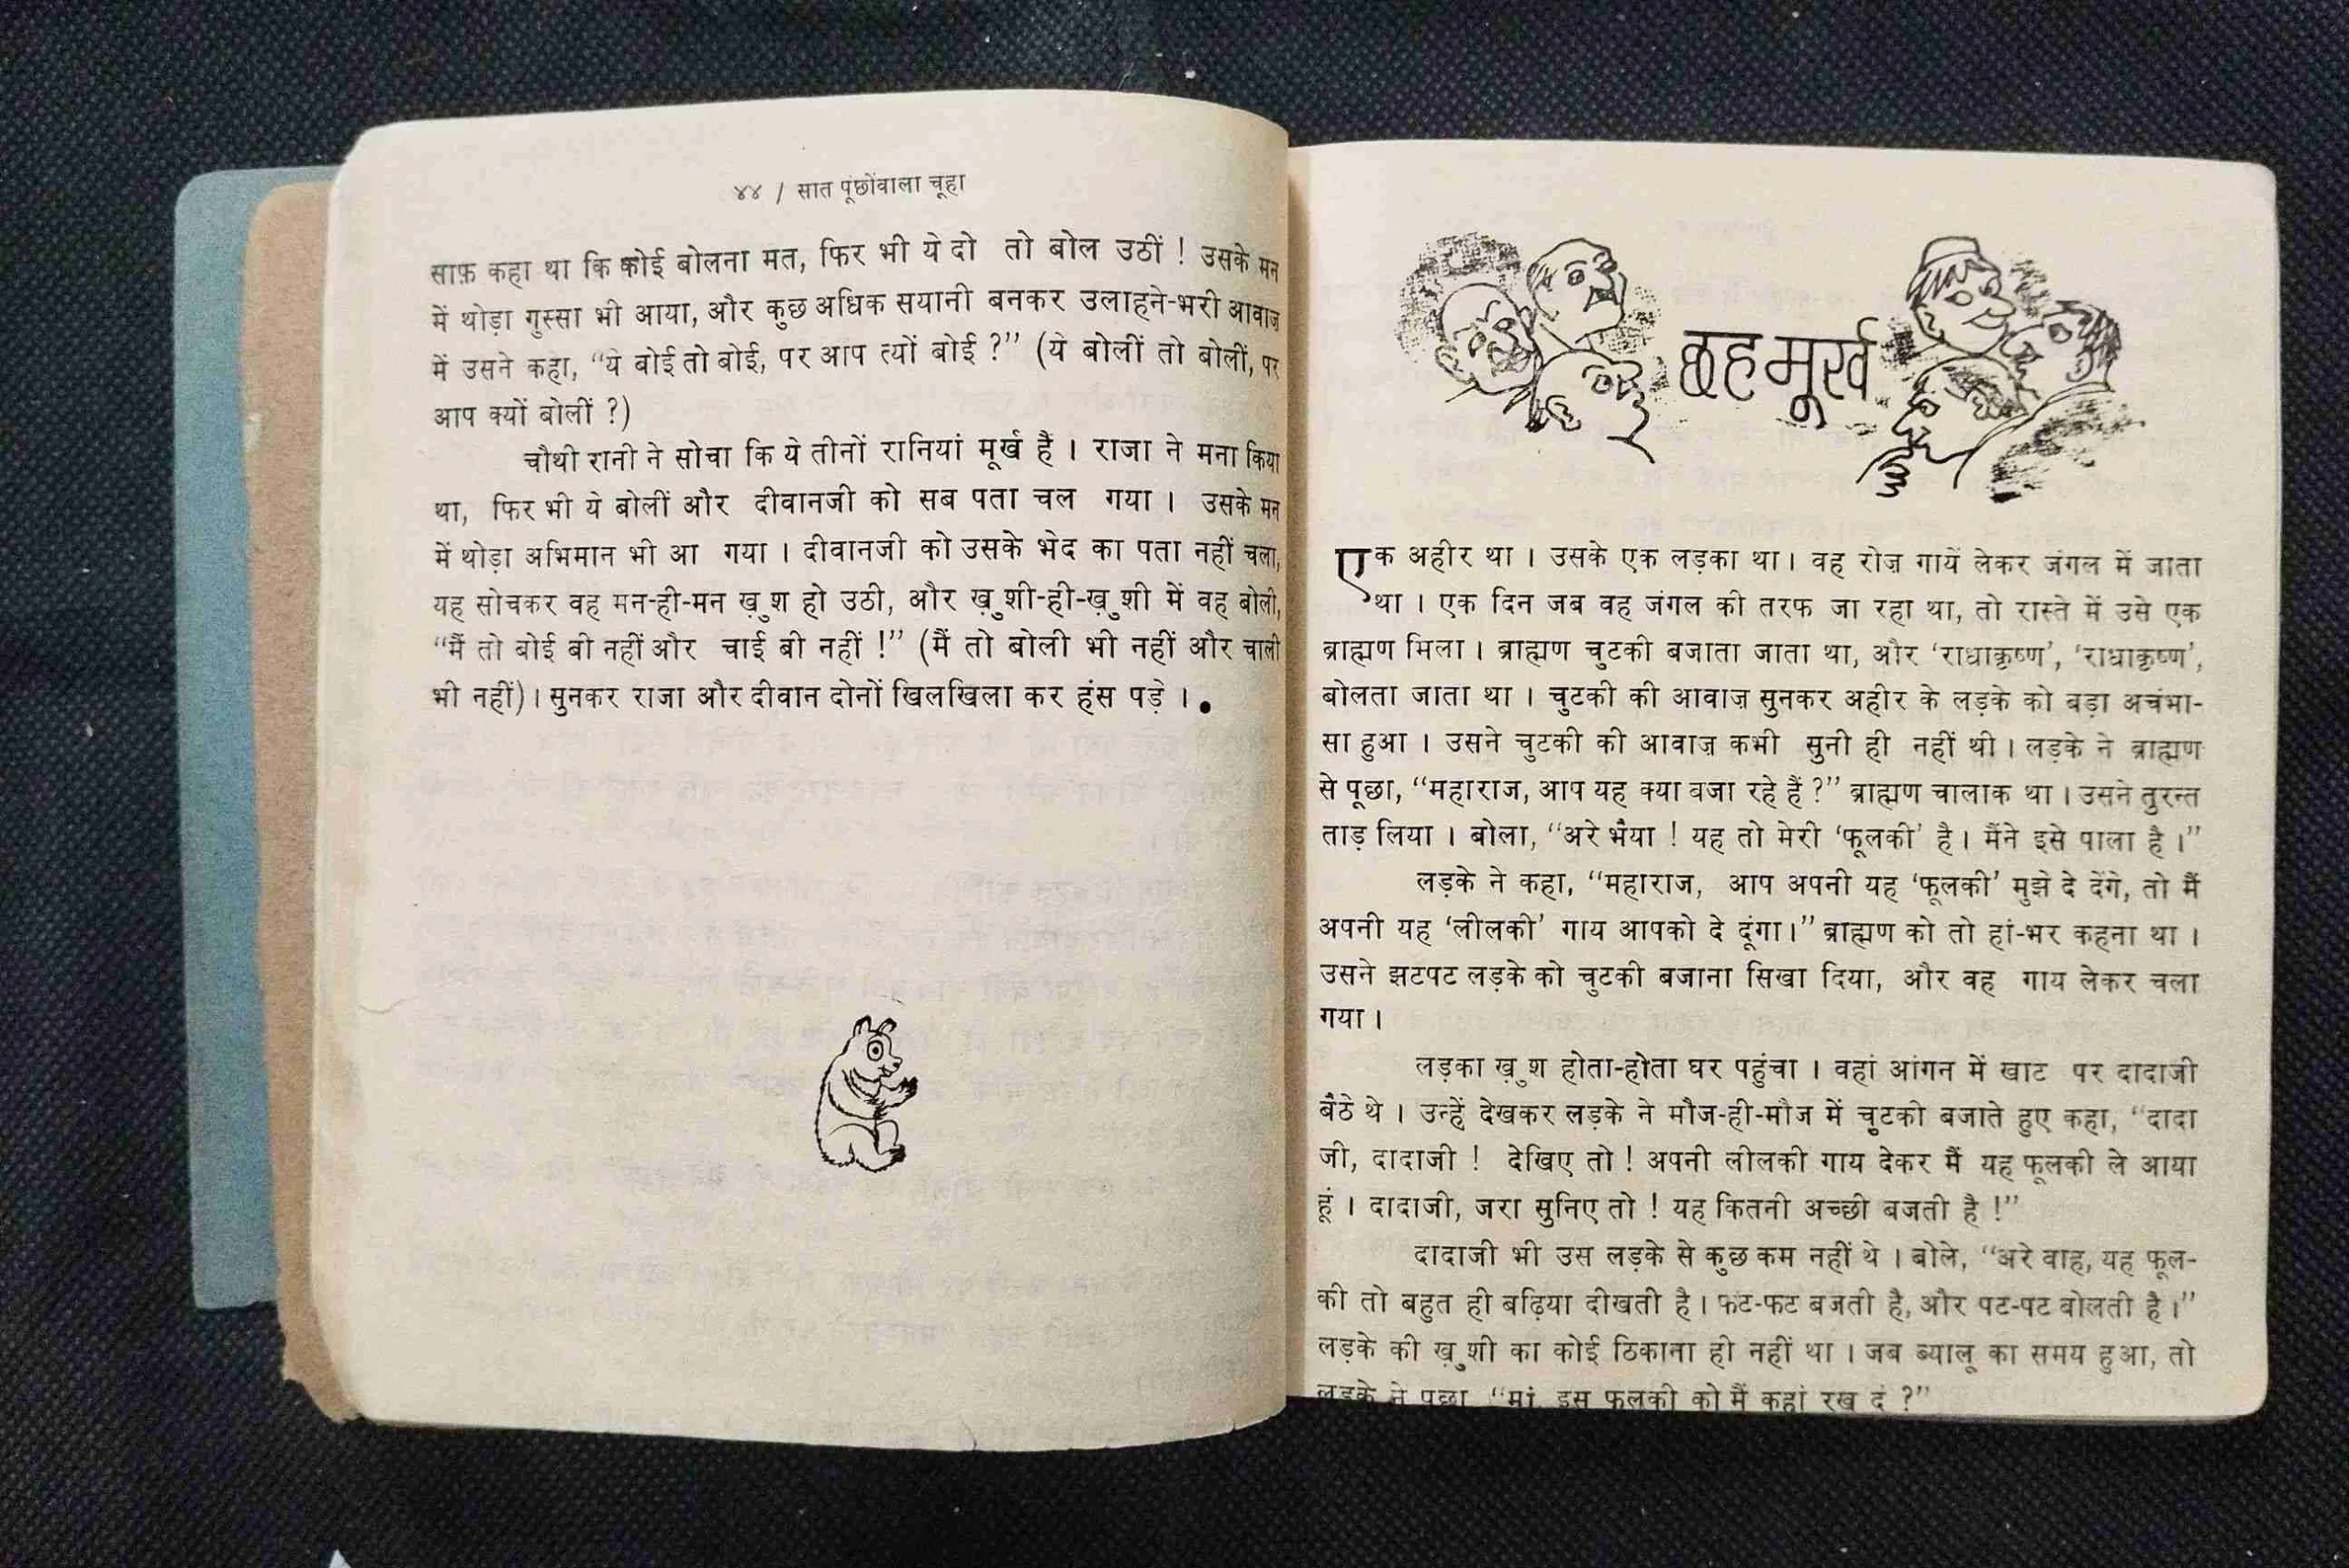 ४४ / सात पूंछोंवाला चूहा
साफ़ कहा था कि कोई बोलना मत, फिर भी ये दो तो बोल उठीं ! उसके मन
में थोड़ा गुस्सा भी आया, और कुछ अधिक सयानी बनकर उलाहने-भरी आवाज़
में उसने कहा, “ये बोई तो बोई, पर आप त्यों बोई ?” (ये बोलीं तो बोलीं, पर
आप क्यों बोलीं ?)
चौथी रानी ने सोचा कि ये तीनों रानियां मूर्ख हैं । राजा ने मना किया
था, फिर भी ये बोलीं और दीवानजी को सब पता चल गया । उसके मन
में थोड़ा अभिमान भी आ गया । दीवानजी को उसके भेद का पता नहीं चला,
यह सोचकर वह मन-ही-मन ख़ुश हो उठी, और ख़ुशी-ही-ख़ुशी में वह बोली,
“मैं तो बोई बी नहीं और चाई बी नहीं !” (मैं तो बोली भी नहीं और चाली
भी नहीं) । सुनकर राजा और दीवान दोनों खिलखिला कर हंस पड़े । •
छह मूर्ख
एक अहीर था । उसके एक लड़का था । वह रोज़ गायें लेकर जंगल में जाता
था । एक दिन जब वह जंगल की तरफ जा रहा था, तो रास्ते में उसे एक
ब्राह्मण मिला । ब्राह्मण चुटकी बजाता जाता था, और ‘राधाकृष्ण’, ‘राधाकृष्ण’,
बोलता जाता था । चुटकी की आवाज़ सुनकर अहीर के लड़के को बड़ा अचंभा-
सा हुआ । उसने चुटकी की आवाज़ कभी सुनी ही नहीं थी । लड़के ने ब्राह्मण
से पूछा, “महाराज, आप यह क्या बजा रहे हैं ?” ब्राह्मण चालाक था । उसने तुरन्त
ताड़ लिया । बोला, “अरे भैया ! यह तो मेरी ‘फूलकी’ है । मैंने इसे पाला है ।”
लड़के ने कहा, “महाराज, आप अपनी यह ‘फूलकी’ मुझे दे देंगे, तो मैं
अपनी यह ‘लीलकी’ गाय आपको दे दूंगा ।” ब्राह्मण को तो हां-भर कहना था ।
उसने झटपट लड़के को चुटकी बजाना सिखा दिया, और वह गाय लेकर चला
गया ।
लड़का ख़ुश होता-होता घर पहुंचा । वहां आंगन में खाट पर दादाजी
बैठे थे । उन्हें देखकर लड़के ने मौज-ही-मौज में चुटकी बजाते हुए कहा, “दादा
जी, दादाजी ! देखिए तो ! अपनी लीलकी गाय देकर मैं यह फूलकी ले आया
हूं । दादाजी, जरा सुनिए तो ! यह कितनी अच्छी बजती है !”
दादाजी भी उस लड़के से कुछ कम नहीं थे । बोले, “अरे वाह, यह फूल-
की तो बहुत ही बढ़िया दीखती है । फट-फट बजती है, और पट-पट बोलती है ।”
लड़के की ख़ुशी का कोई ठिकाना ही नहीं था । जब ब्यालू का समय हुआ, तो
लड़के ने पूछा, “मां, इस फूलकी को मैं कहां रख दूं ?”